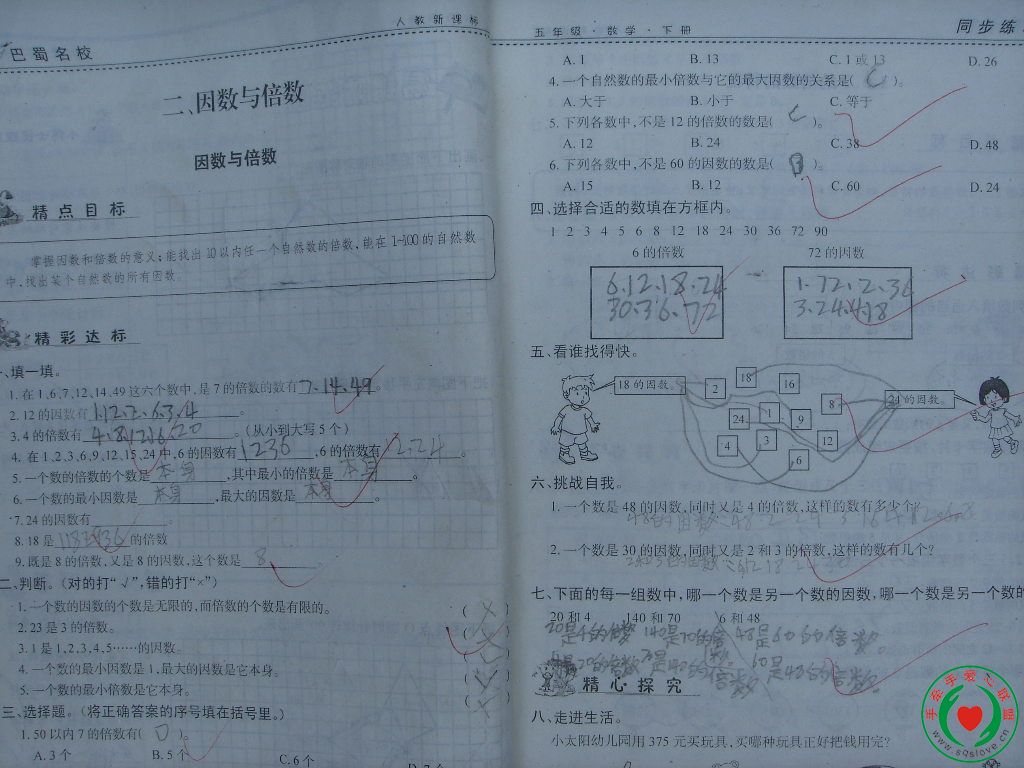 巴蜀名校
人教新课标
二、因数与倍数
因数与倍数
精点目标
掌握因数和倍数的意义；能找出10以内任一个自然数的倍数，能在1~100的自然数
中，找出某个自然数的所有因数。
精彩达标
一、填一填。
1. 在1、6、7、12、14、49这六个数中，是7的倍数的数有7、14、49。
2. 12的因数有1、12、2、6、3、4。
3. 4的倍数有4、8、12、16、20。（从小到大写5个）
4. 在1、2、3、6、9、12、15、24中，6的因数有1 2 3 6，6的倍数有
5. 一个数的倍数的个数是本身，其中最小的倍数是本身。
6. 一个数的最小因数是本身，最大的因数是本身。
7. 24的因数有。
8. 18是 的倍数
9. 既是8的倍数，又是8的因数，这个数是8。
二、判断。（对的打“√”，错的打“×”）
1. 一个数的因数的个数是无限的，而倍数的个数是有限的。
2. 23是3的倍数。
3. 1是1、2、3、4、5……的因数。
4. 一个数的最小因数是1，最大的因数是它本身。
5. 一个数的最小倍数是它本身。
三、选择题。（将正确答案的序号填在括号里。）
1. 50以内7的倍数有(D)。
A. 3个 B. 5个 C. 6个 D. 7个
五年级·数学·下册
同步练
A. 1 B. 13 C. 1或13 D. 26
4. 一个自然数的最小倍数与它的最大因数的关系是(C)。
A. 大于 B. 小于 C. 等于
5. 下列各数中，不是12的倍数的数是(C)。
A. 12 B. 24 C. 38 D. 48
6. 下列各数中，不是60的因数的数是(D)。
A. 15 B. 12 C. 60 D. 24
四、选择合适的数填在方框内。
1 2 3 4 5 6 8 12 18 24 30 36 72 90
6的倍数 72的因数
6、12、18、24
30、36、72
1、72、2、36
3、24、4、18
五、看谁找得快。
18的因数。
24的因数。
2
18
16
8
24
1
9
4
3
12
6
六、挑战自我。
1. 一个数是48的因数，同时又是4的倍数，这样的数有多少个？
2. 一个数是30的因数，同时又是2和3的倍数，这样的数有几个？
七、下面的每一组数中，哪一个数是另一个数的因数，哪一个数是另一个数的
20和4 140和70 6和48
精心·探究
八、走进生活。
小太阳幼儿园用375元买玩具，买哪种玩具正好把钱用完？
手牵手爱心联盟
www.sqslove.cn